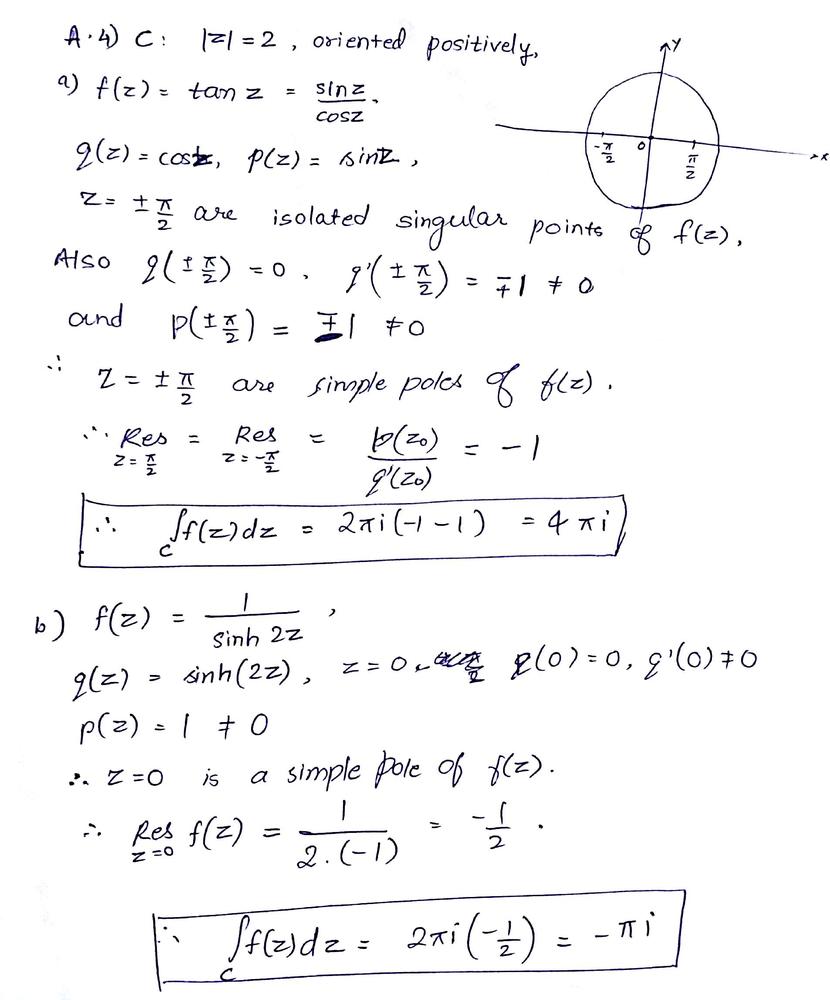 A.4) C: |z| = 2, oriented positively,
a) f(z) = tan z = sinz/cosz.
q(z) = cosz, p(z) = sinz,
z = ± π/2 are isolated singular points of f(z),
Also q(± π/2) = 0. q'(± π/2) = ∓1 ≠ 0
and p(± π/2) = ∓1 ≠ 0
∴ z = ± π/2 are simple poles of f(z).
∴ Res z=π/2 = Res z=-π/2 = p(z₀)/q'(z₀) = -1
∴ ∫C f(z)dz = 2πi(-1-1) = 4πi
y
-π/2 0 π/2 x
b) f(z) = 1/sinh 2z,
q(z) = sinh(2z), z=0, q(0)=0, q'(0)≠0
p(z) = 1 ≠ 0
∴ z=0 is a simple pole of f(z).
∴ Res z=0 f(z) = 1/2.(-1) = -1/2.
∴ ∫C f(z)dz = 2πi(-1/2) = -πi